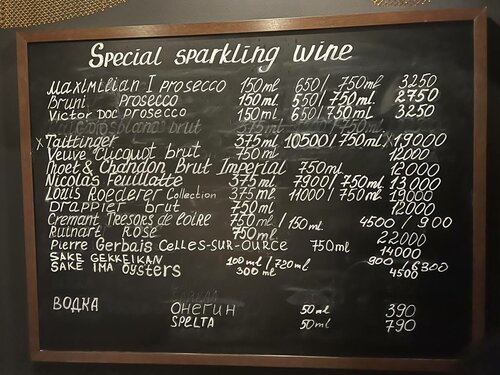 Special sparkling wine
Maximilian I prosecco 150ml 650/ 750ml. 3250
Bruni prosecco 150ml 550/ 750ml. 2750
Victor Doc prosecco 150ml 650/ 750ml. 3250
brut 375ml
x Taittinger 375ml 10500/750ml. x 19000
Veuve Clicquot brut 750ml 12000
Moet & Chandon Brut Imperial 750ml 12000
Nicolas Feuillatte 375ml 7900/ 750ml 13000
Louis Roederer Collection 375ml 11000/ 750ml 19000
Drappier brut 750ml 12000
Cremant Tresors de Loire 750ml/150ml 4500 / 900
Ruinart Rose 750ml 22000
Pierre Gerbais Celles-sur-Ource 750ml 14000
Sake Gekkeikan 100ml/720ml 900 6300
Sake Ima Oysters 300ml 4500
ВОДКА
ОНЕГИН 50ml 390
SPELTA 50ml 790